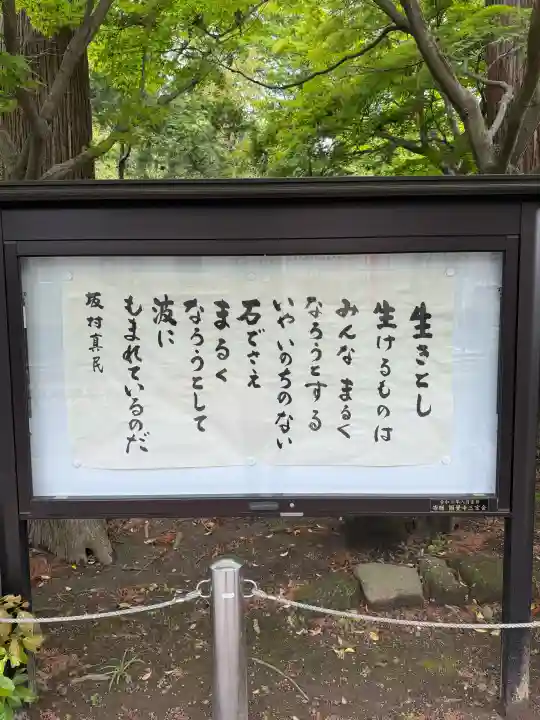 生きとし
生けるものは
みんな まるく
なろうとする
いやいのちのない
石でさえ
まるく
なろうとして
波に
もまれているのだ
坂村真民
寄贈 圓覚寺三宝会